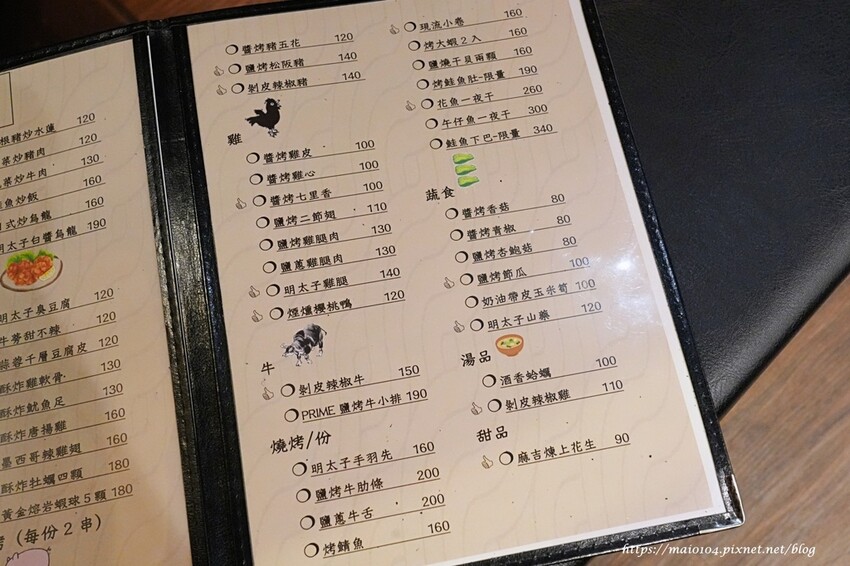 根豬炒水蓮 120
菜炒豬肉 120
菜炒牛肉 130
魚炒飯 160
式炒烏龍 160
明太子白醬烏龍 190
明太子臭豆腐 120
牛蒡甜不辣 120
蒜蓉千層豆腐皮 120
酥炸雞軟骨 130
酥炸魷魚足 130
酥炸唐揚雞 160
墨西哥辣雞翅 160
酥炸牡蠣四顆 180
黃金熔岩蝦球5顆 180
烤(每份2串)
醬烤豬五花 120
鹽烤松阪豬 140
剝皮辣椒豬 140
雞
醬烤雞皮 100
醬烤雞心 100
醬烤七里香 100
鹽烤二節翅 110
鹽烤雞腿肉 130
鹽蔥雞腿肉 130
明太子雞腿 140
煙燻櫻桃鴨 120
牛
剝皮辣椒牛 150
PRIME 鹽烤牛小排 190
燒烤/份
明太子手羽先 160
鹽烤牛肋條 200
鹽蔥牛舌 200
烤鯖魚 160
現流小卷 160
烤大蝦2入 160
鹽燒干貝兩顆 160
烤鮭魚肚-限量 190
花魚一夜干 260
午仔魚一夜干 300
鮭魚下巴-限量 340
蔬食
醬烤香菇 80
醬烤青椒 80
鹽烤杏鮑菇 80
鹽烤節瓜 100
奶油帶皮玉米筍 100
明太子山藥 120
湯品
酒香蛤蠣 100
剝皮辣椒雞 110
甜品
麻吉煉上花生 90
https://maio104.pixnet.net/blog